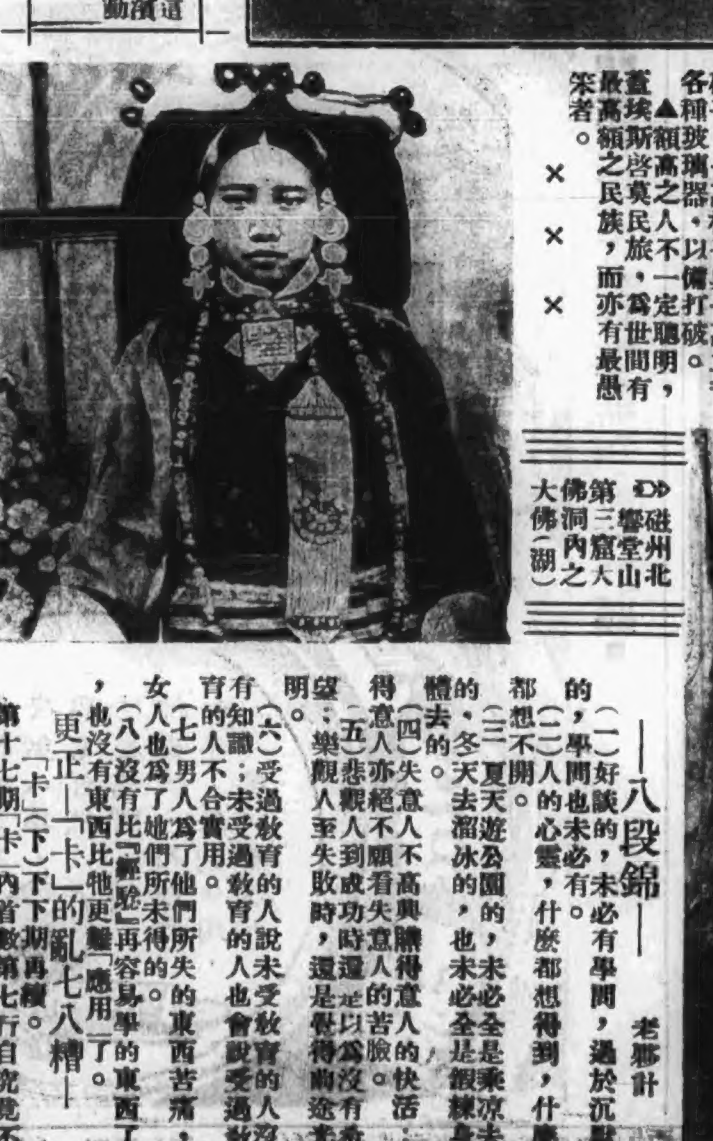 這濱動
各種玻璃器，以備打破。
▲額高之人不一定聰明，
蓋埃斯啓莫民旅，爲世間有
最高額之民族，而亦有最愚
笨者。
×
×
×
磁州北
響堂山
第三窟大
佛洞內之
大佛（湖）
—八段錦—
老夥計
（一）好談的，未必有學問，過於沉
的，學問也未必有。
（二）人的心靈，什麼都想得到，什
都想不開。
（三）夏天遊公園的，未必全是乘凉去
的、冬天去溜冰的，也未必全是鍛練身
體去的。
（四）失意人不高興瞧得意人的快活；
得意人亦絕不願看失意人的苦臉。
（五）悲觀人到成功時還是以爲沒有希
望；樂觀人至失敗時，還是覺得前途光
明。
（六）受過敎育的人說未受敎育的人沒
有知識；未受過敎育的人也會說受過敎
育的人不合實用。
（七）男人爲了他們所失的東西苦痛，
女人也爲了她們所未得的。
（八）沒有比『經驗』再容易學的東西了
，也沒有東西比牠更難「應用」了。
更正—「卡」的亂七八糟—
「卡」（下）下下期再續。
第十七期「卡」內首數第七行自究竟不